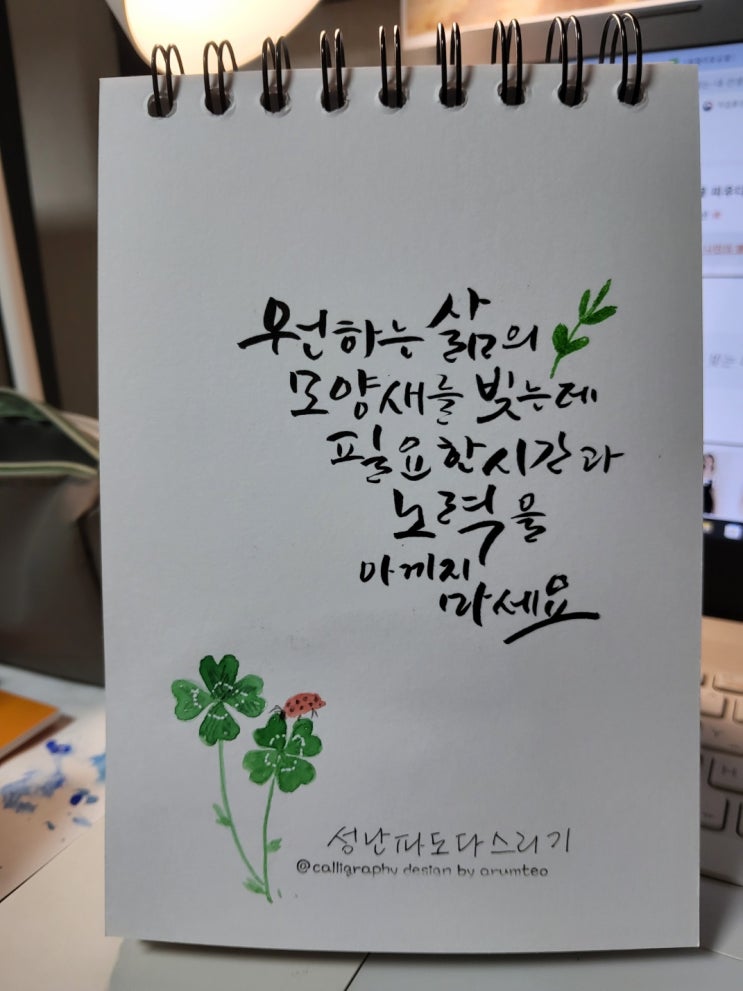 원하는 삶의
모양새를 빚는데
필요한 시간과
노력을
아끼지
마세요
성난파도다스리기
@calligraphy design by arumteo